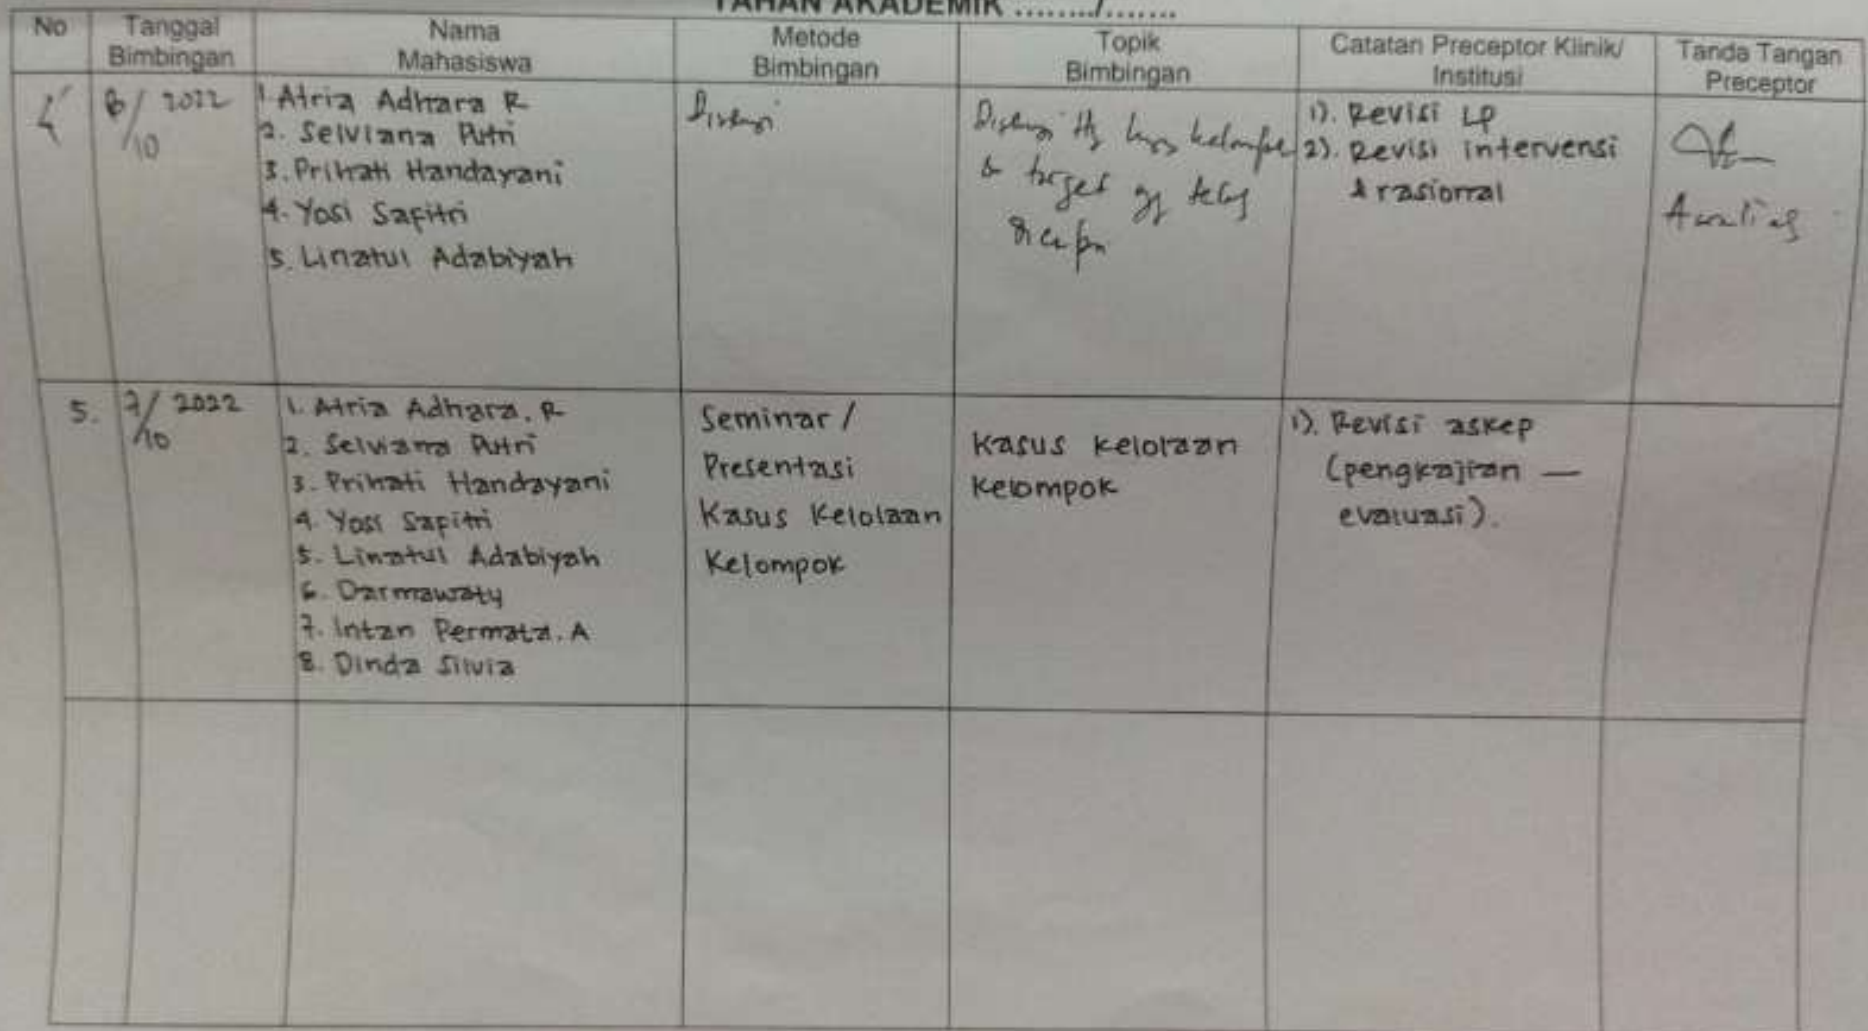 TAHAN AKADEMIK ......../.......
No
Tanggal
Bimbingan
Nama
Mahasiswa
Metode
Bimbingan
Topik
Bimbingan
Catatan Preceptor Klinik/
Institusi
Tanda Tangan
Preceptor
/10 2022
1. Atria Adhara R
2. Selviana Putri
3. Prihati Handayani
4. Yosi Safitri
5. Linatul Adabiyah
Diskusi
Diskusi
& target yg telah
1). Revisi LP
2). Revisi intervensi
& rasional
5.
7/10 2022
1. Atria Adhara. R
2. Selviana Putri
3. Prihati Handayani
4. Yosi Sapitri
5. Linatul Adabiyah
6. Darmawaty
7. Intan Permata. A
8. Dinda Silvia
Seminar /
Presentasi
Kasus Kelolaan
Kelompok
Kasus Kelolaan
Kelompok
1). Revisi askep
(pengkajian —
evaluasi).